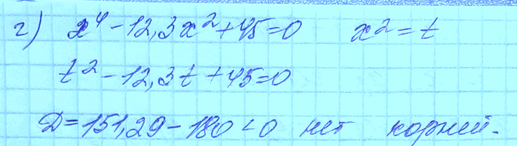 г) x⁴ - 12,3x² + 45 = 0 x² = t
t² - 12,3t + 45 = 0
Д = 151,29 - 180 < 0 нет корней.